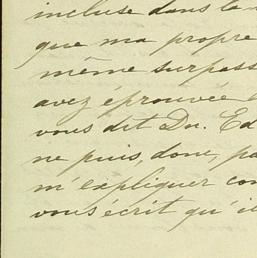 incluse dans la
que ma propre
même surpass
avez éprouvée
vous dit Du. Ed
ne puis, donc, pa
m'expliquer com
vous écrit qu'il